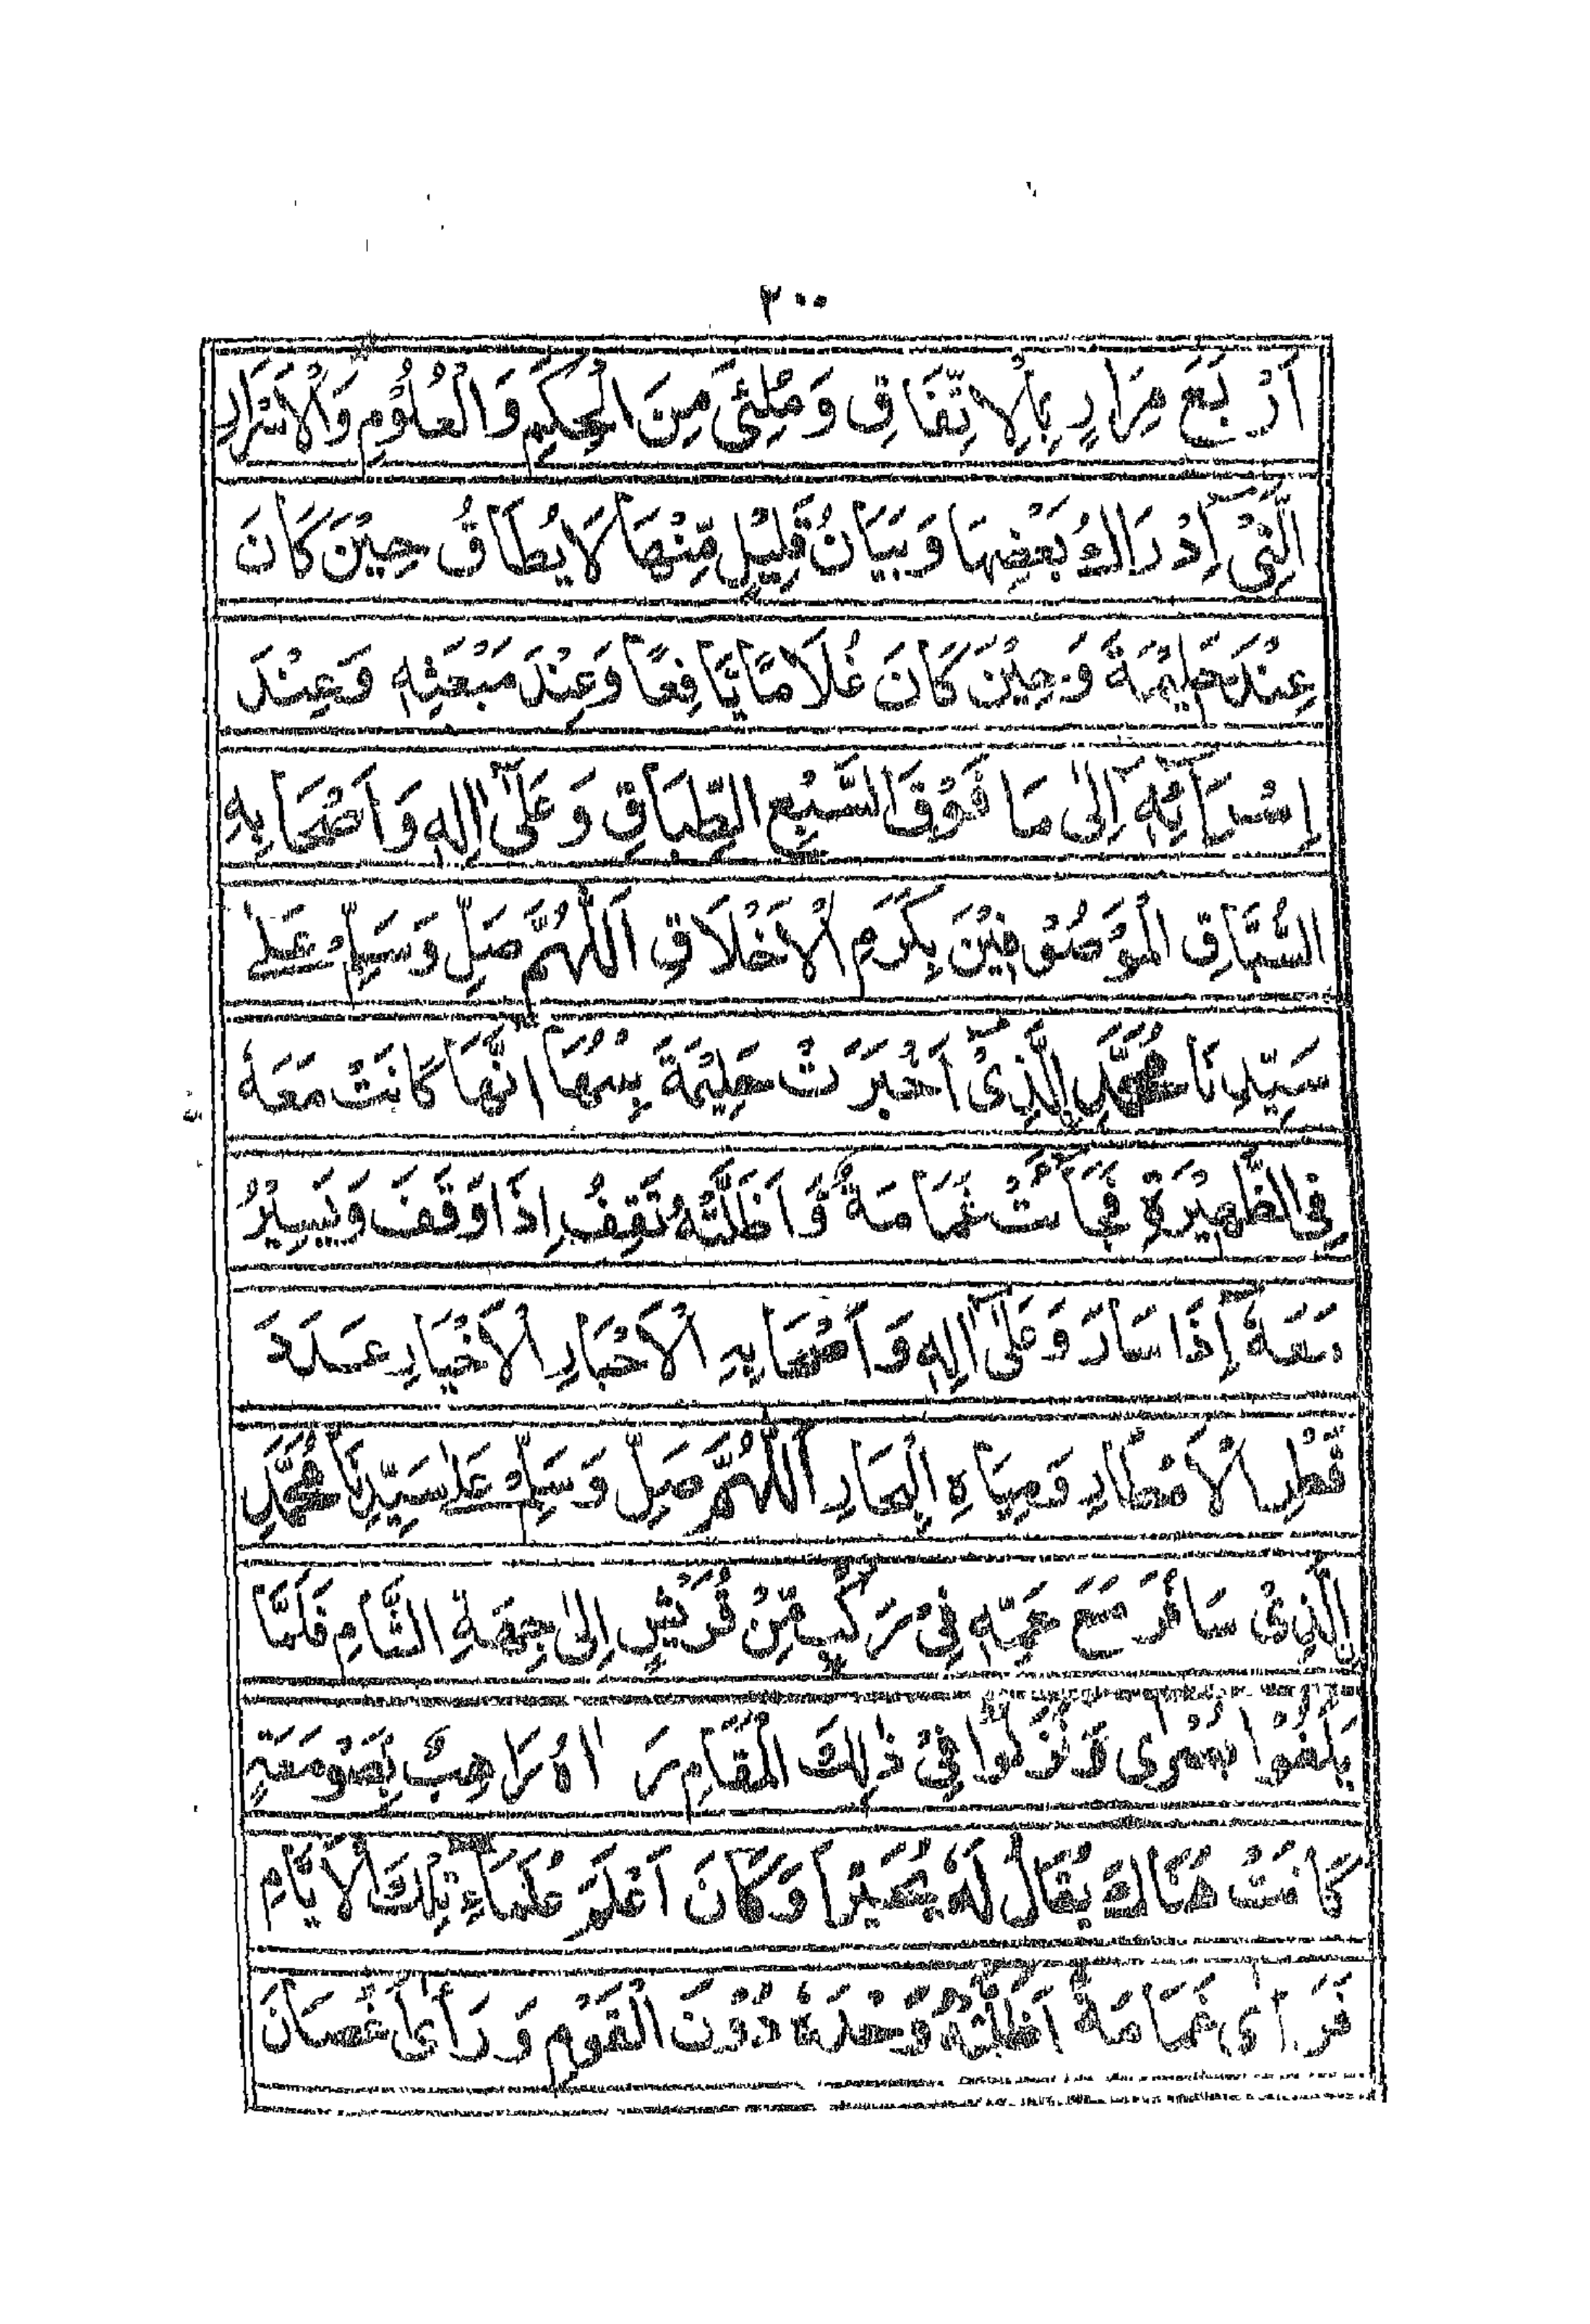 ٣٠٠
اَرْبَعَ مِرَارٍ بِالْاِتِّفَاقِ وَمُلِئَ مِنَ الْحِكَمِ وَالْعُلُوْمِ وَالْاَسْرَارِ
الَّتِيْ اِدْرَاكُ بَعْضِهَا وَبَيَانُ قَلِيْلٍ مِّنْهَا لَا يُطَاقُ حِيْنَ كَانَ
عِنْدَ حَلِيْمَةَ وَحِيْنَ كَانَ غُلَامًا يَّافِعًا وَعِنْدَ مَبْعَثِهٖ وَعِنْدَ
اِسْرَآئِهٖ اِلٰى مَا فَوْقَ السَّبْعِ الطِّبَاقِ وَعَلٰٓى اٰلِهٖ وَاَصْحَابِهِ
السُّبَّاقِ الْمَوْصُوْفِيْنَ بِكَرَمِ الْاَخْلَاقِ اَللّٰهُمَّ صَلِّ وَسَلِّمْ عَلٰى
سَيِّدِنَا مُحَمَّدٍ الَّذِىْٓ اَخْبَرَتْ حَلِيْمَةُ بِنْتُهَا اَنَّهَا كَانَتْ مَعَهٗ
فِى الظَّهِيْرَةِ فَجَآءَتْ غَمَامَةٌ وَّاَظَلَّتْهُ تَقِفُ اِذَا وَقَفَ وَتَسِيْرُ
مَعَهٗٓ اِذَا سَارَ وَعَلٰٓى اٰلِهٖ وَاَصْحَابِهِ الْاَحْبَارِ الْاَخْيَارِ عَدَدَ
قَطْرِ الْاَمْطَارِ وَمِيَاهِ الْبِحَارِ اَللّٰهُمَّ صَلِّ وَسَلِّمْ عَلٰى سَيِّدِنَا مُحَمَّدٍ
الَّذِىْ سَافَرَ مَعَ عَمِّهٖ فِىْ رَكْبٍ مِّنْ قُرَيْشٍ اِلٰى جِهَةِ الشَّامِ فَلَمَّا
بَلَغُوْا بُصْرٰى وَنَزَلُوْا فِىْ ذٰلِكَ الْمَقَامِ رَاٰهُ رَاهِبٌ بِصَوْمَعَةٍ
كَانَتْ هُنَاكَ يُقَالُ لَهٗ بُحَيْرَا وَكَانَ اَعْلَمَ عُلَمَآءِ تِلْكَ الْاَيَّامِ
فَرَاٰى غَمَامَةً اَظَلَّتْهُ وَحْدَهٗ دُوْنَ الْقَوْمِ وَرَآٰى اَغْصَانَ